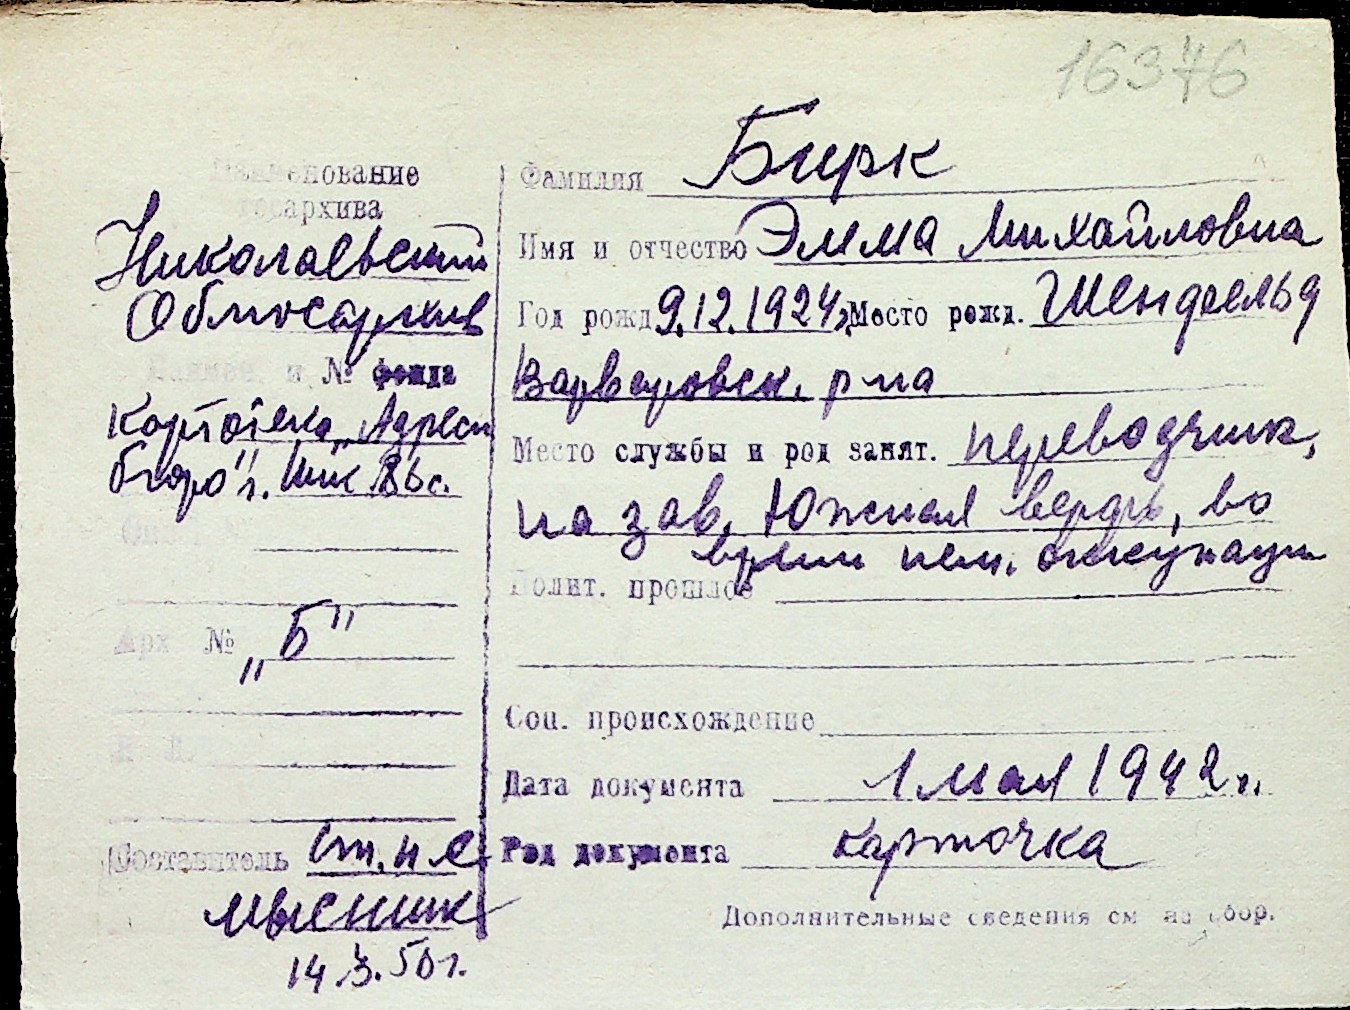 16376
Наименование
госархива
Николаевский
Облгосархив
Наимен. и № фонда
Картотека „Адресн
бюро" г. Ник
Арх №
„Б"
Составитель Ст. н с.
Мысник
14.3.50 г.
Фамилия Бирк
Имя и отчество Эмма Михайловна
Год рожд 9.12.1924, Место рожд. Шенфельд
Варваровск. р-на
Место службы и род занят. переводчик,
на зав. Южная верфь, во
время нем. оккупации
Полит. прошлое
Соц. происхождение
Дата документа 1 мая 1942 г.
Род документа карточка
Дополнительные сведения см на обор.